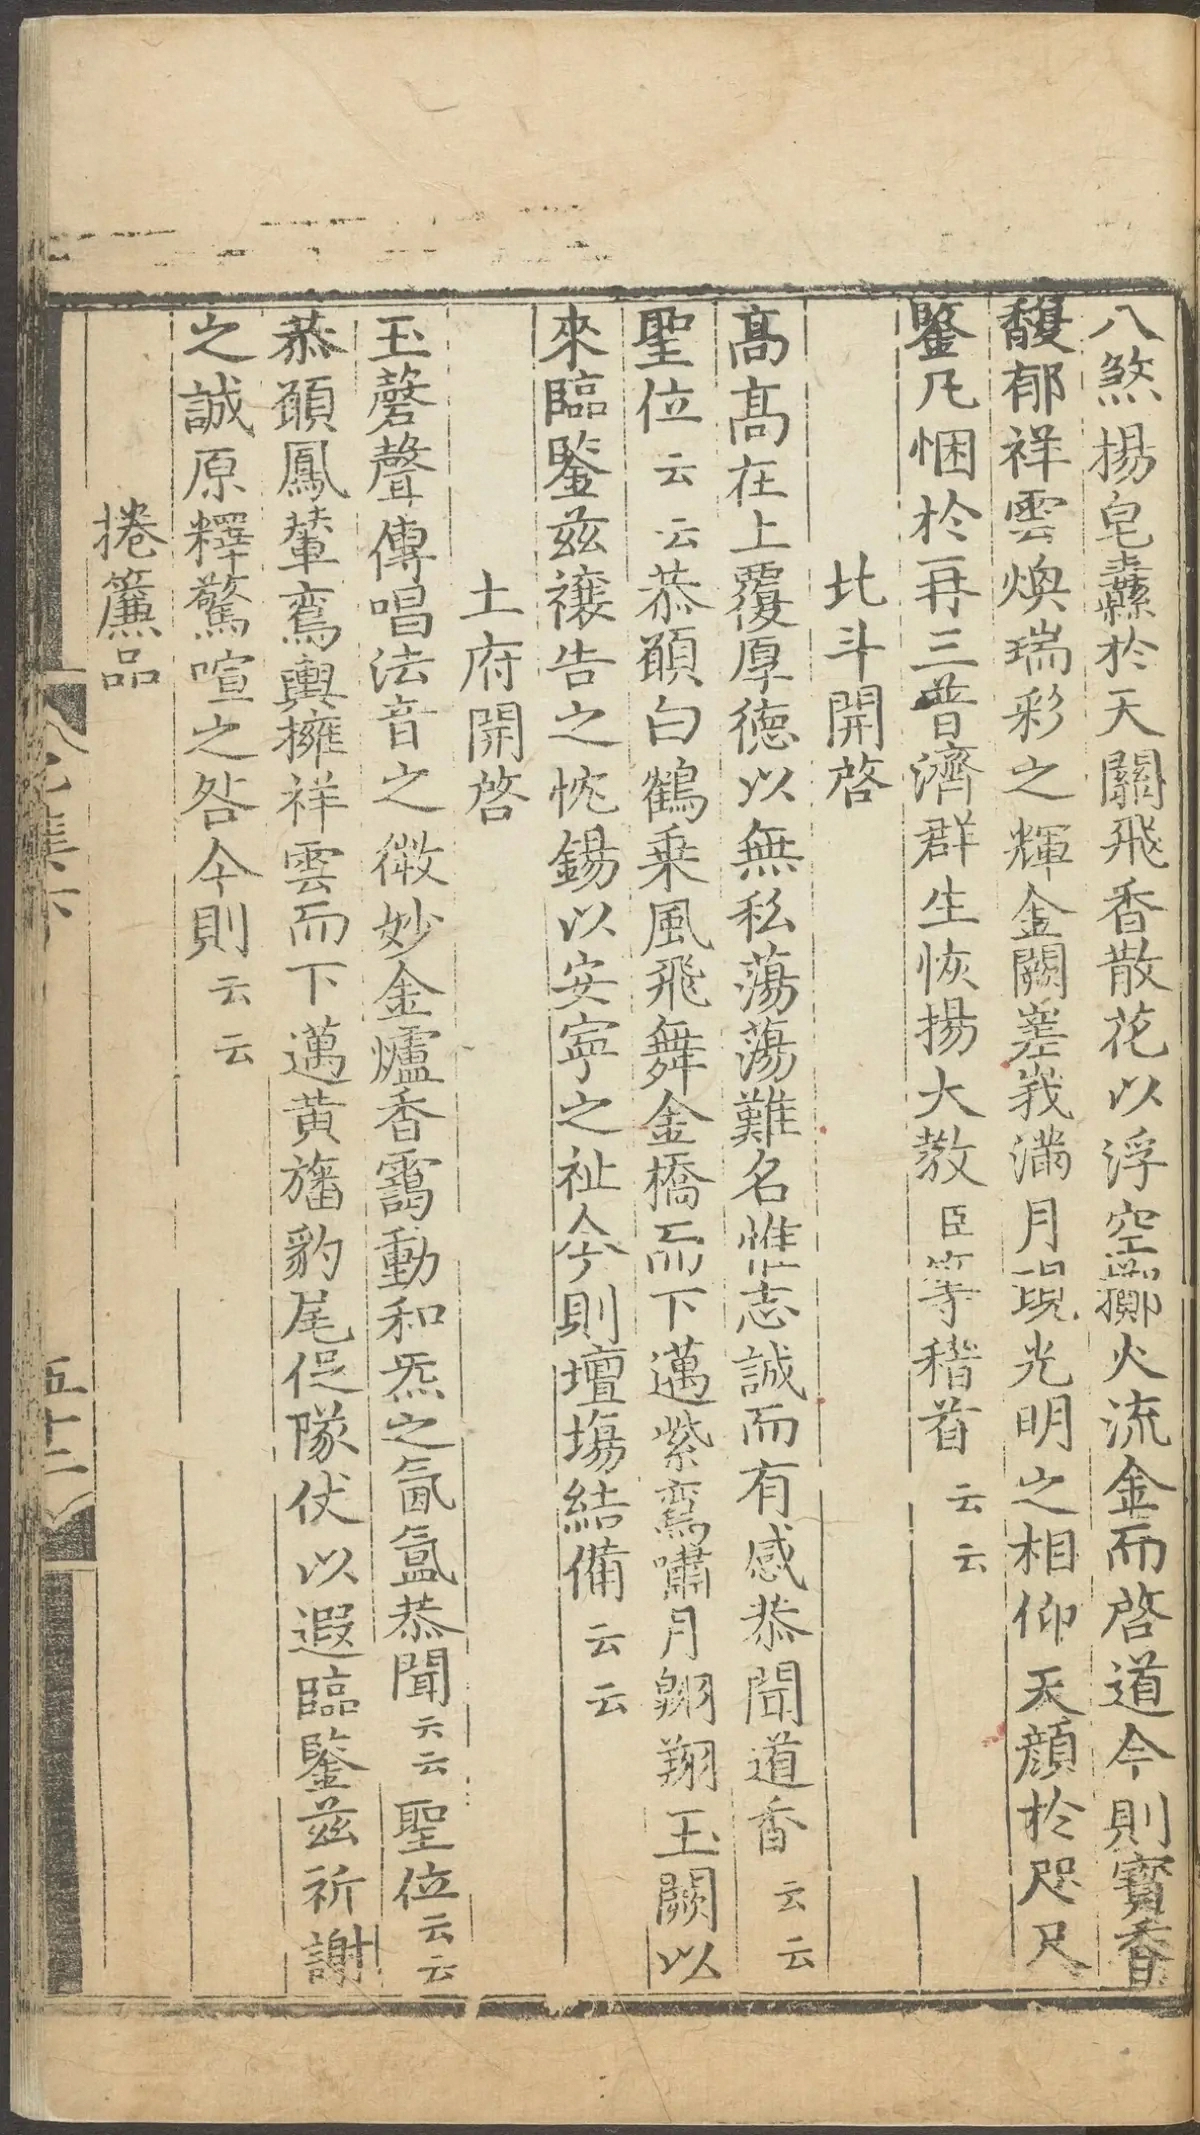 八煞揚皂纛於天關飛香散花以浮空擲火流金而啓道今則寳香
馥郁祥雲煥瑞彩之輝金闕嵳峩滿月現光明之相仰天顔於咫尺
鑒凡悃於再三普濟群生恢揚大教臣等稽首云云
北斗開啓
髙髙在上覆厚德以無私蕩蕩難名惟志誠而有感恭聞道香云云
聖位云云恭願白鶴乗風飛舞金橋而下邁紫鸞嘯月翺翔玉闕以
來臨鑒兹禳告之忱錫以安寧之祉今則壇塲結備云云
土府開啓
玉磬聲傳唱法音之微妙金爐香靄動和炁之氤氲恭聞云云聖位云云
恭願鳳輦鸞輿擁祥雲而下邁黄旛豹尾促隊伏以遐臨鑒兹祈謝
之誠原釋驚喧之咎今則云云
捲簾品
五十二